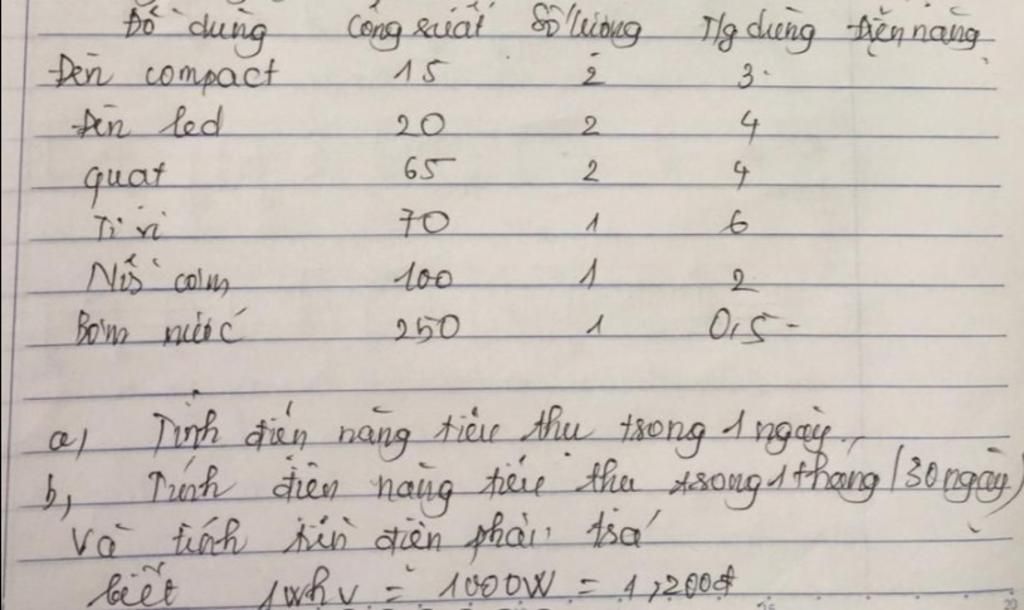 Đồ dùng Công suất Số lượng Tg dùng Điện năng
Đèn compact 15 2 3
Đèn led 20 2 4
quạt 65 2 4
Ti vi 70 1 6
Nồi cơm 100 1 2
Bơm nước 250 1 0,5
a) Tính điện năng tiêu thụ trong 1 ngày.
b, Tính điện năng tiêu thụ trong 1 tháng (30 ngày)
Và tính tiền điện phải trả
biết 1whv = 1000W = 1,200đ